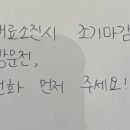 재료소진시 조기마감
방문전,
전화 먼저 주세요!